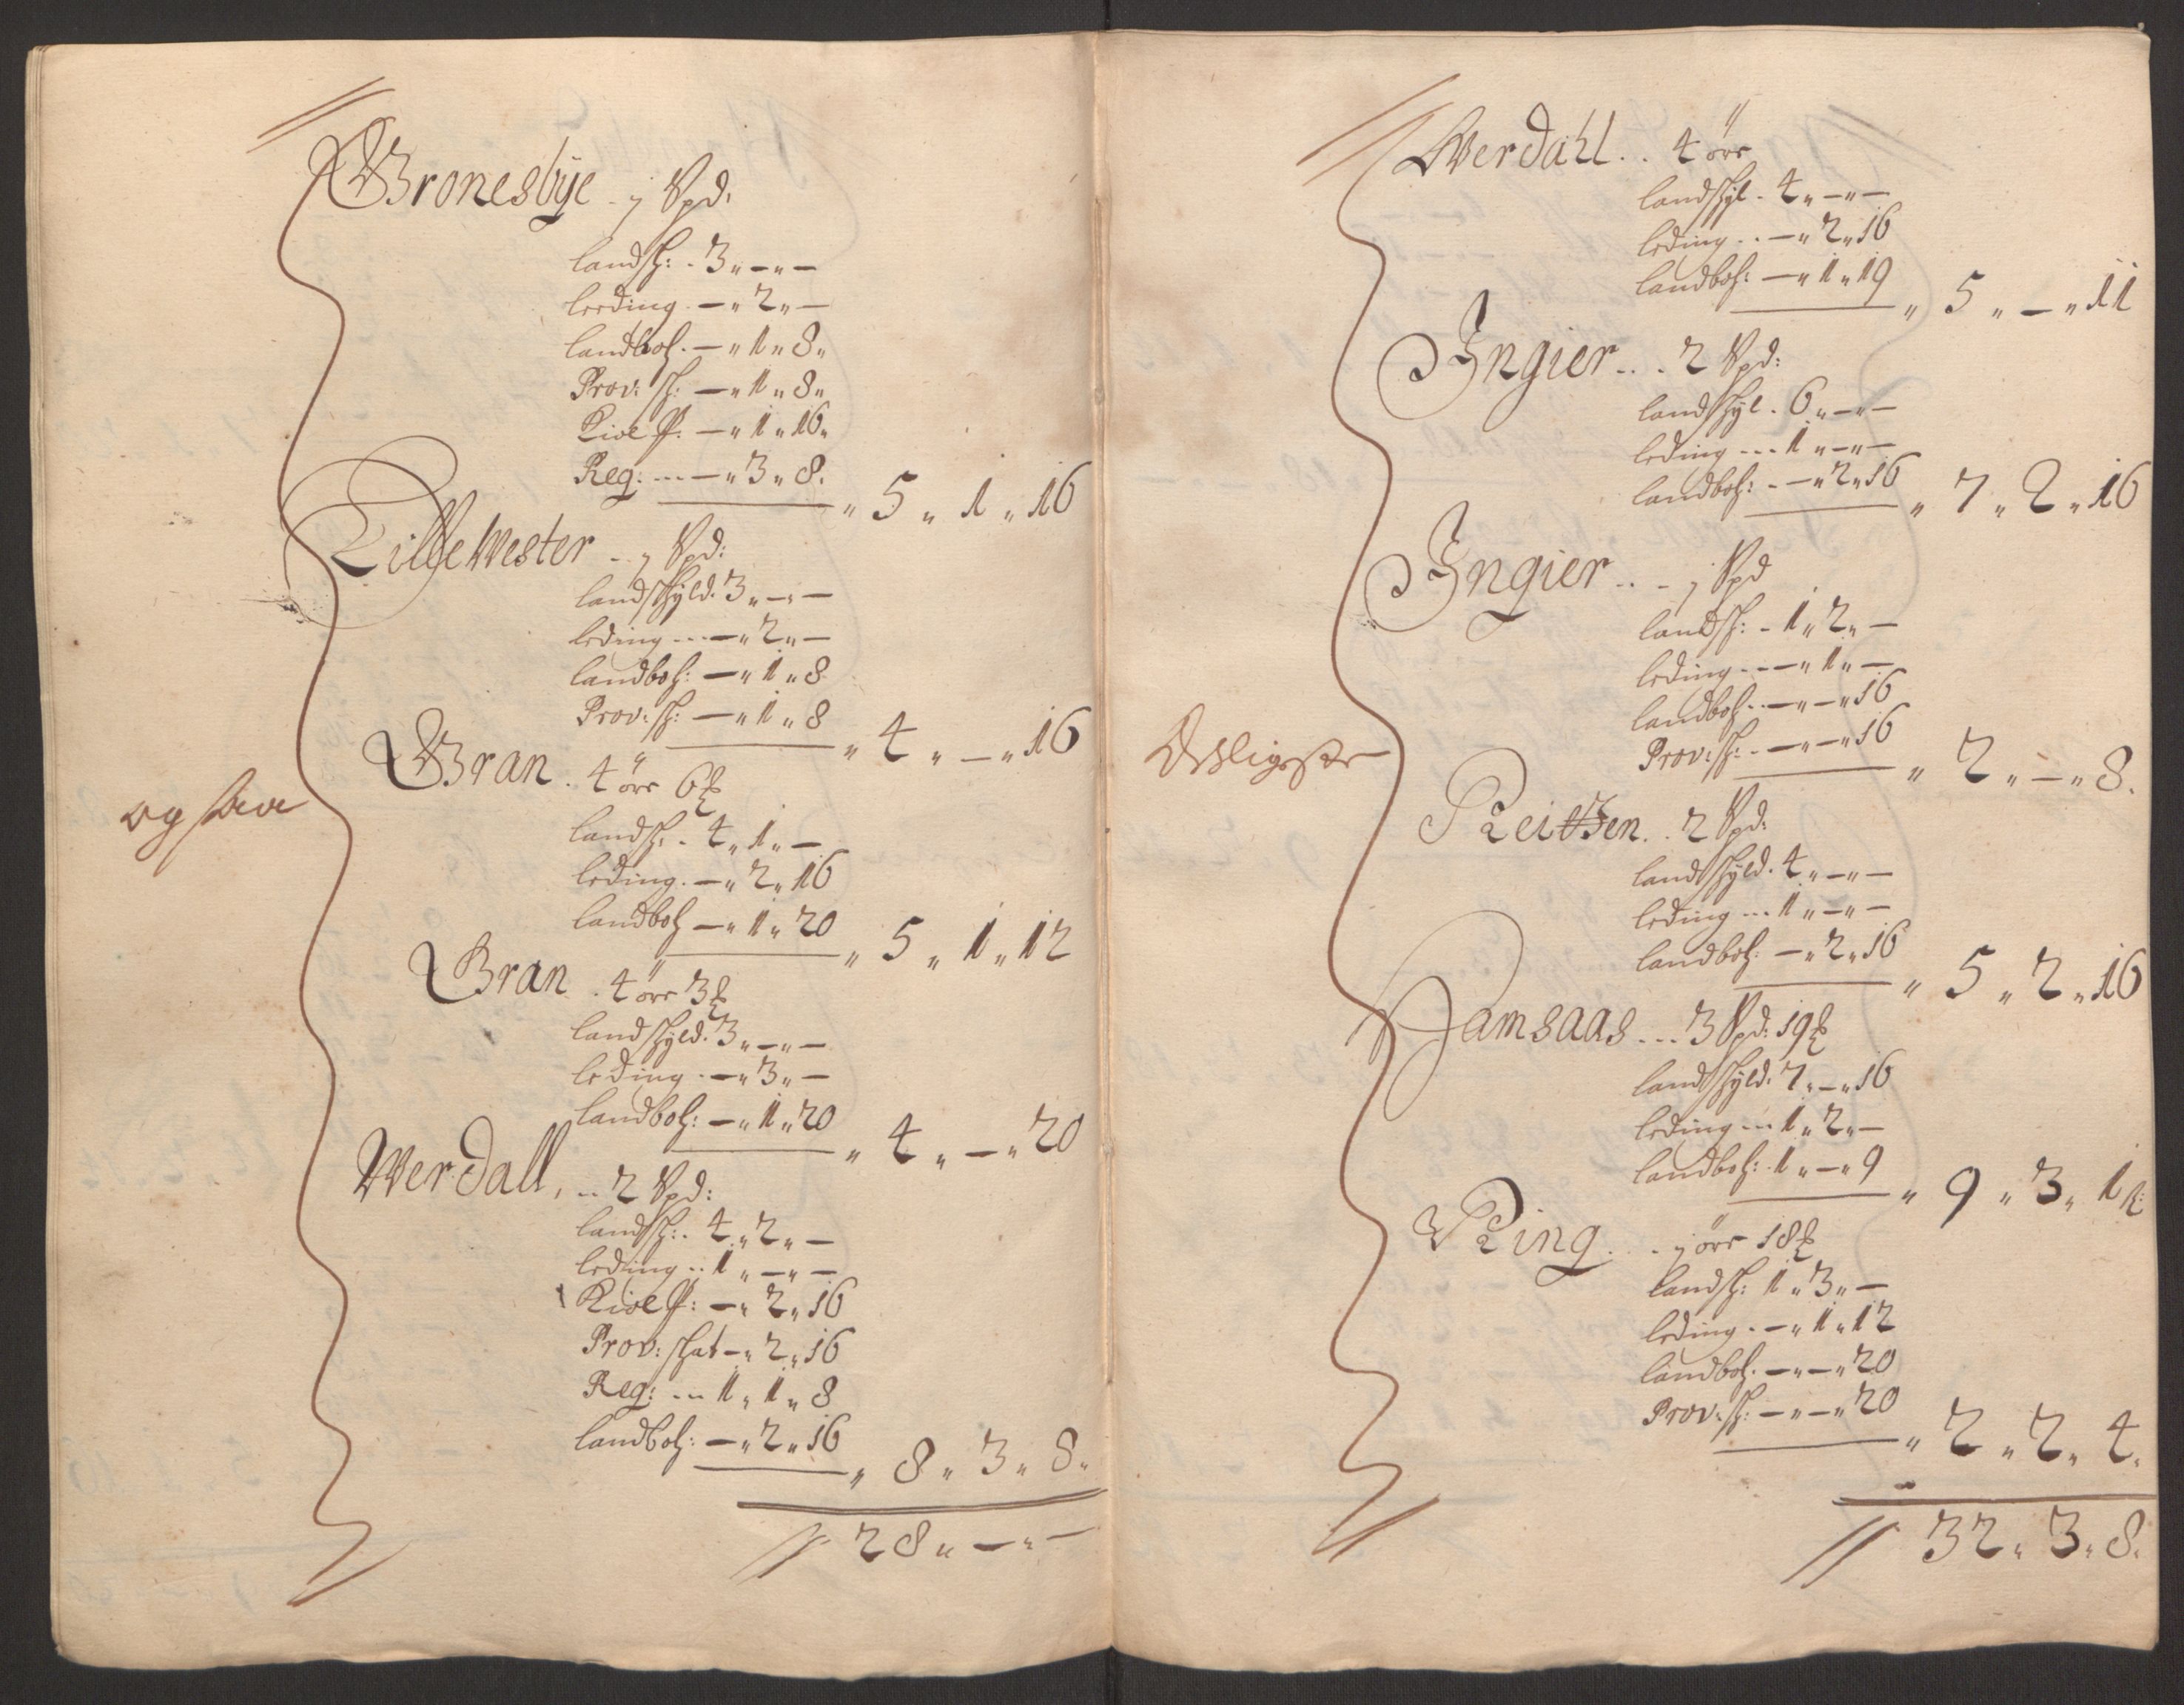 Bronesbÿe - j Spd.
landsk: . 3 „ — „ —
leeding . — „ 2 „ —
landboh . — „ 1 „ 8 „
Prov: sk: — „ 1 „ 8 „
— „ 1 „ 16 „
Reg: ... — „ 3 „ 8 .
„ 5 „ 1 „ 16
Lille Wester - . j Spd:
landskÿld . 3 „ — „ —
leding ... — „ 2 „ —
landboh: — „ 1 „ 8
Prov: sk: — „ 1 „ 8
„ 4 „ — „ 16
Bran . 4 öre 6 ₤
og
landsk . . 4 „ 1 „ —
leding . — „ 2 „ 16
landboh — „ 1 „ 20
„ 5 „ 1 „ 12
Bran . 4 öre 3 ₤
landskÿld . 3 „ — „ —
leding . — „ 3 „ —
landboh: — „ 1 „ 20
„ 4 „ — „ 20
Werdall, .. 2 Spd:
landsk: . 4 „ 2 „ —
leding .. 1 „ — „ —
— „ 2 „ 16
Prov: skat — „ 2 „ 16
Reg: ... 1 „ 1 „ 8
landboh: — „ 2 „ 16
„ 8 „ 3 „ 8 .
// 28 „ — „ —
Werdahl . . 4 öre
landskÿl . 4 „ — „ —
leding . . — „ 2 „ 16
landboh: — „ 1 „ 19
„ 5 „ — „ 11
Ingier . . . 2 Spd:
landskÿl . 6 „ — „ —
leding ... 1 „ — „ —
landboh: . — „ 2 „ 16
„ 7 „ 2 „ 16
Ingier . . - j Spd
landsk: . 1 „ 2 „ —
leding ... — „ 1 „ —
landboh . . — „ — „ 16
Prov: sk: . — „ — „ 16
„ 2 „ — „ 8 .
Desligeste
. . 2 Spd:
landskÿld . 4 „ — „ —
leding ... 1 „ — „ —
landboh: — „ 2 „ 16
„ 5 „ 2 „ 16
Ramsaas ... 3 Spd: 19 ₤
landskÿld . 7 „ — „ 16
leding ... 1 „ 2 „ —
landboh: . 1 „ — „ 9
„ 9 „ 3 „ 1 ß:
Ring . . - j öre 18 ₤
landsk: 1 „ 3 „ —
leding . — „ 1 „ 12
landboh . — „ — „ 20
Prov: sk: — „ — „ 20
„ 2 „ 2 „ 4 .
// 32 „ 3 „ 8 .